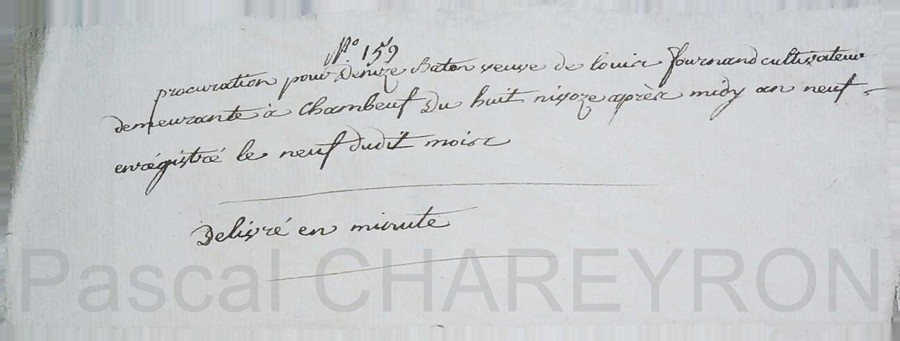 N.° 159
procuration pour Denize Baton veuve de Louis fournand cultivateur
demeurante à Chambeuf Du huit nivoze après midy an neuf -
enrégistré le neuf dudit mois
Delivré en minute
Pascal CHAREYRON